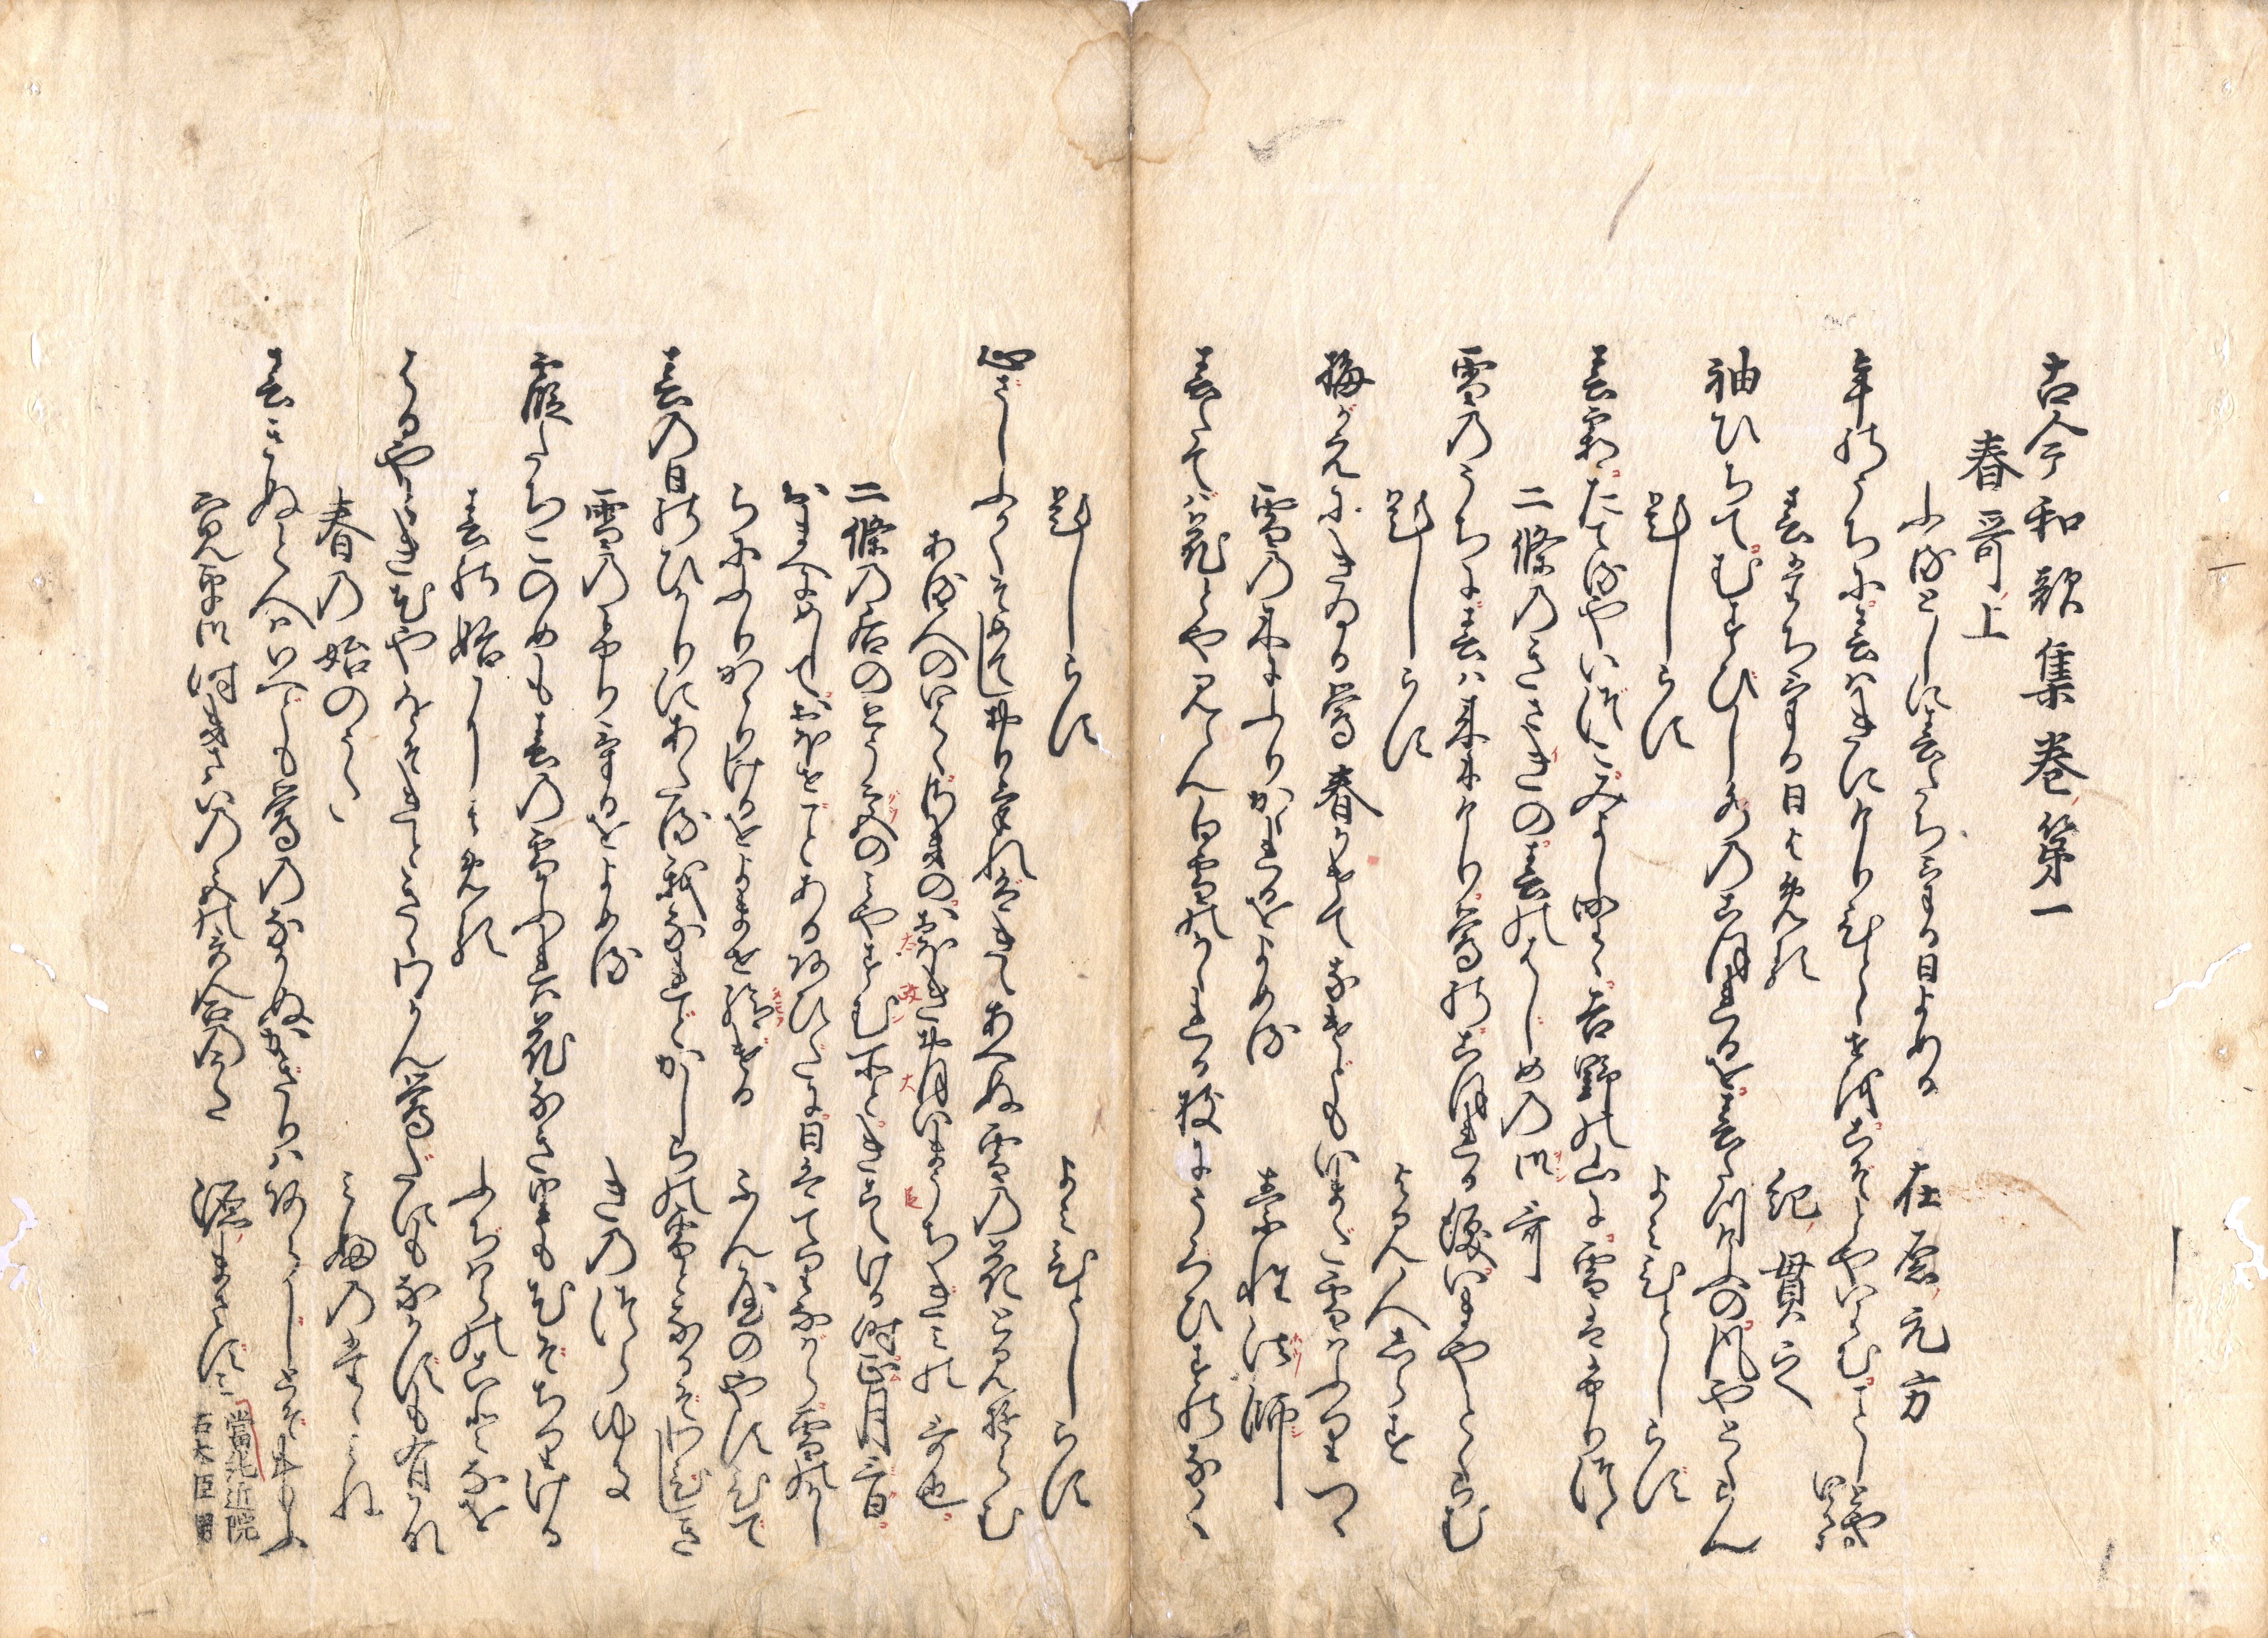 古今和歌集巻第一
春哥上
ふるとしに春たちける日よめる　在原元方
年のうちに春はきにけりひとゝせをこぞとやいはむことしとやいはん
春たちける日よめる　紀貫之
袖ひちてむすびし水のこほれるを春立けふの風やとくらん
題しらず　よみ人しらず
春霞たてるやいづこみよしのゝ吉野の山に雪はふりつゝ
二條のきさきの春のはじめの御哥
雪のうちに春は来にけり鶯のこほれる涙いまやとくらむ
題しらず　よみ人しらず
梅がえにきゐる鶯春かけてなけどもいまだ雪はふりつゝ
雪の木にふりかゝれるをよめる　素性法師
春たてば花とや見らん白雪のかゝれる枝にうぐひすのなく
題しらず　よみ人しらず
心ざしふかくそめてしおりければきえあへぬ雪の花と見ゆらむ
ある人のいはくさきのおほきおほいまうちぎみの哥也
二條の后のとう宮のみやすむ所ときこえける時正月三日
おまへにめしておほせごとあるあひだに日はてりながら雪のかし
らにふりかゝりけるをよませ給ける　ふん屋のやすひで
春の日のひかりにあたる我なれどかしらの雪となるぞわびしき
雪のふりけるをよめる　きのつらゆき
霞たちこのめも春の雪ふれば花なきさともはなぞちりける
春の始によめる　ふぢはらのことなを
はるやときはなやをそきときゝわかん鶯だにもなかずも有かな
春の始のうた　みぶのたゞみね
春きぬと人はいへども鶯のなかぬかぎりはあらじとぞおもふ
寛平御時きさいの宮の哥合のうた　源まさずみ　當純近院
右大臣男